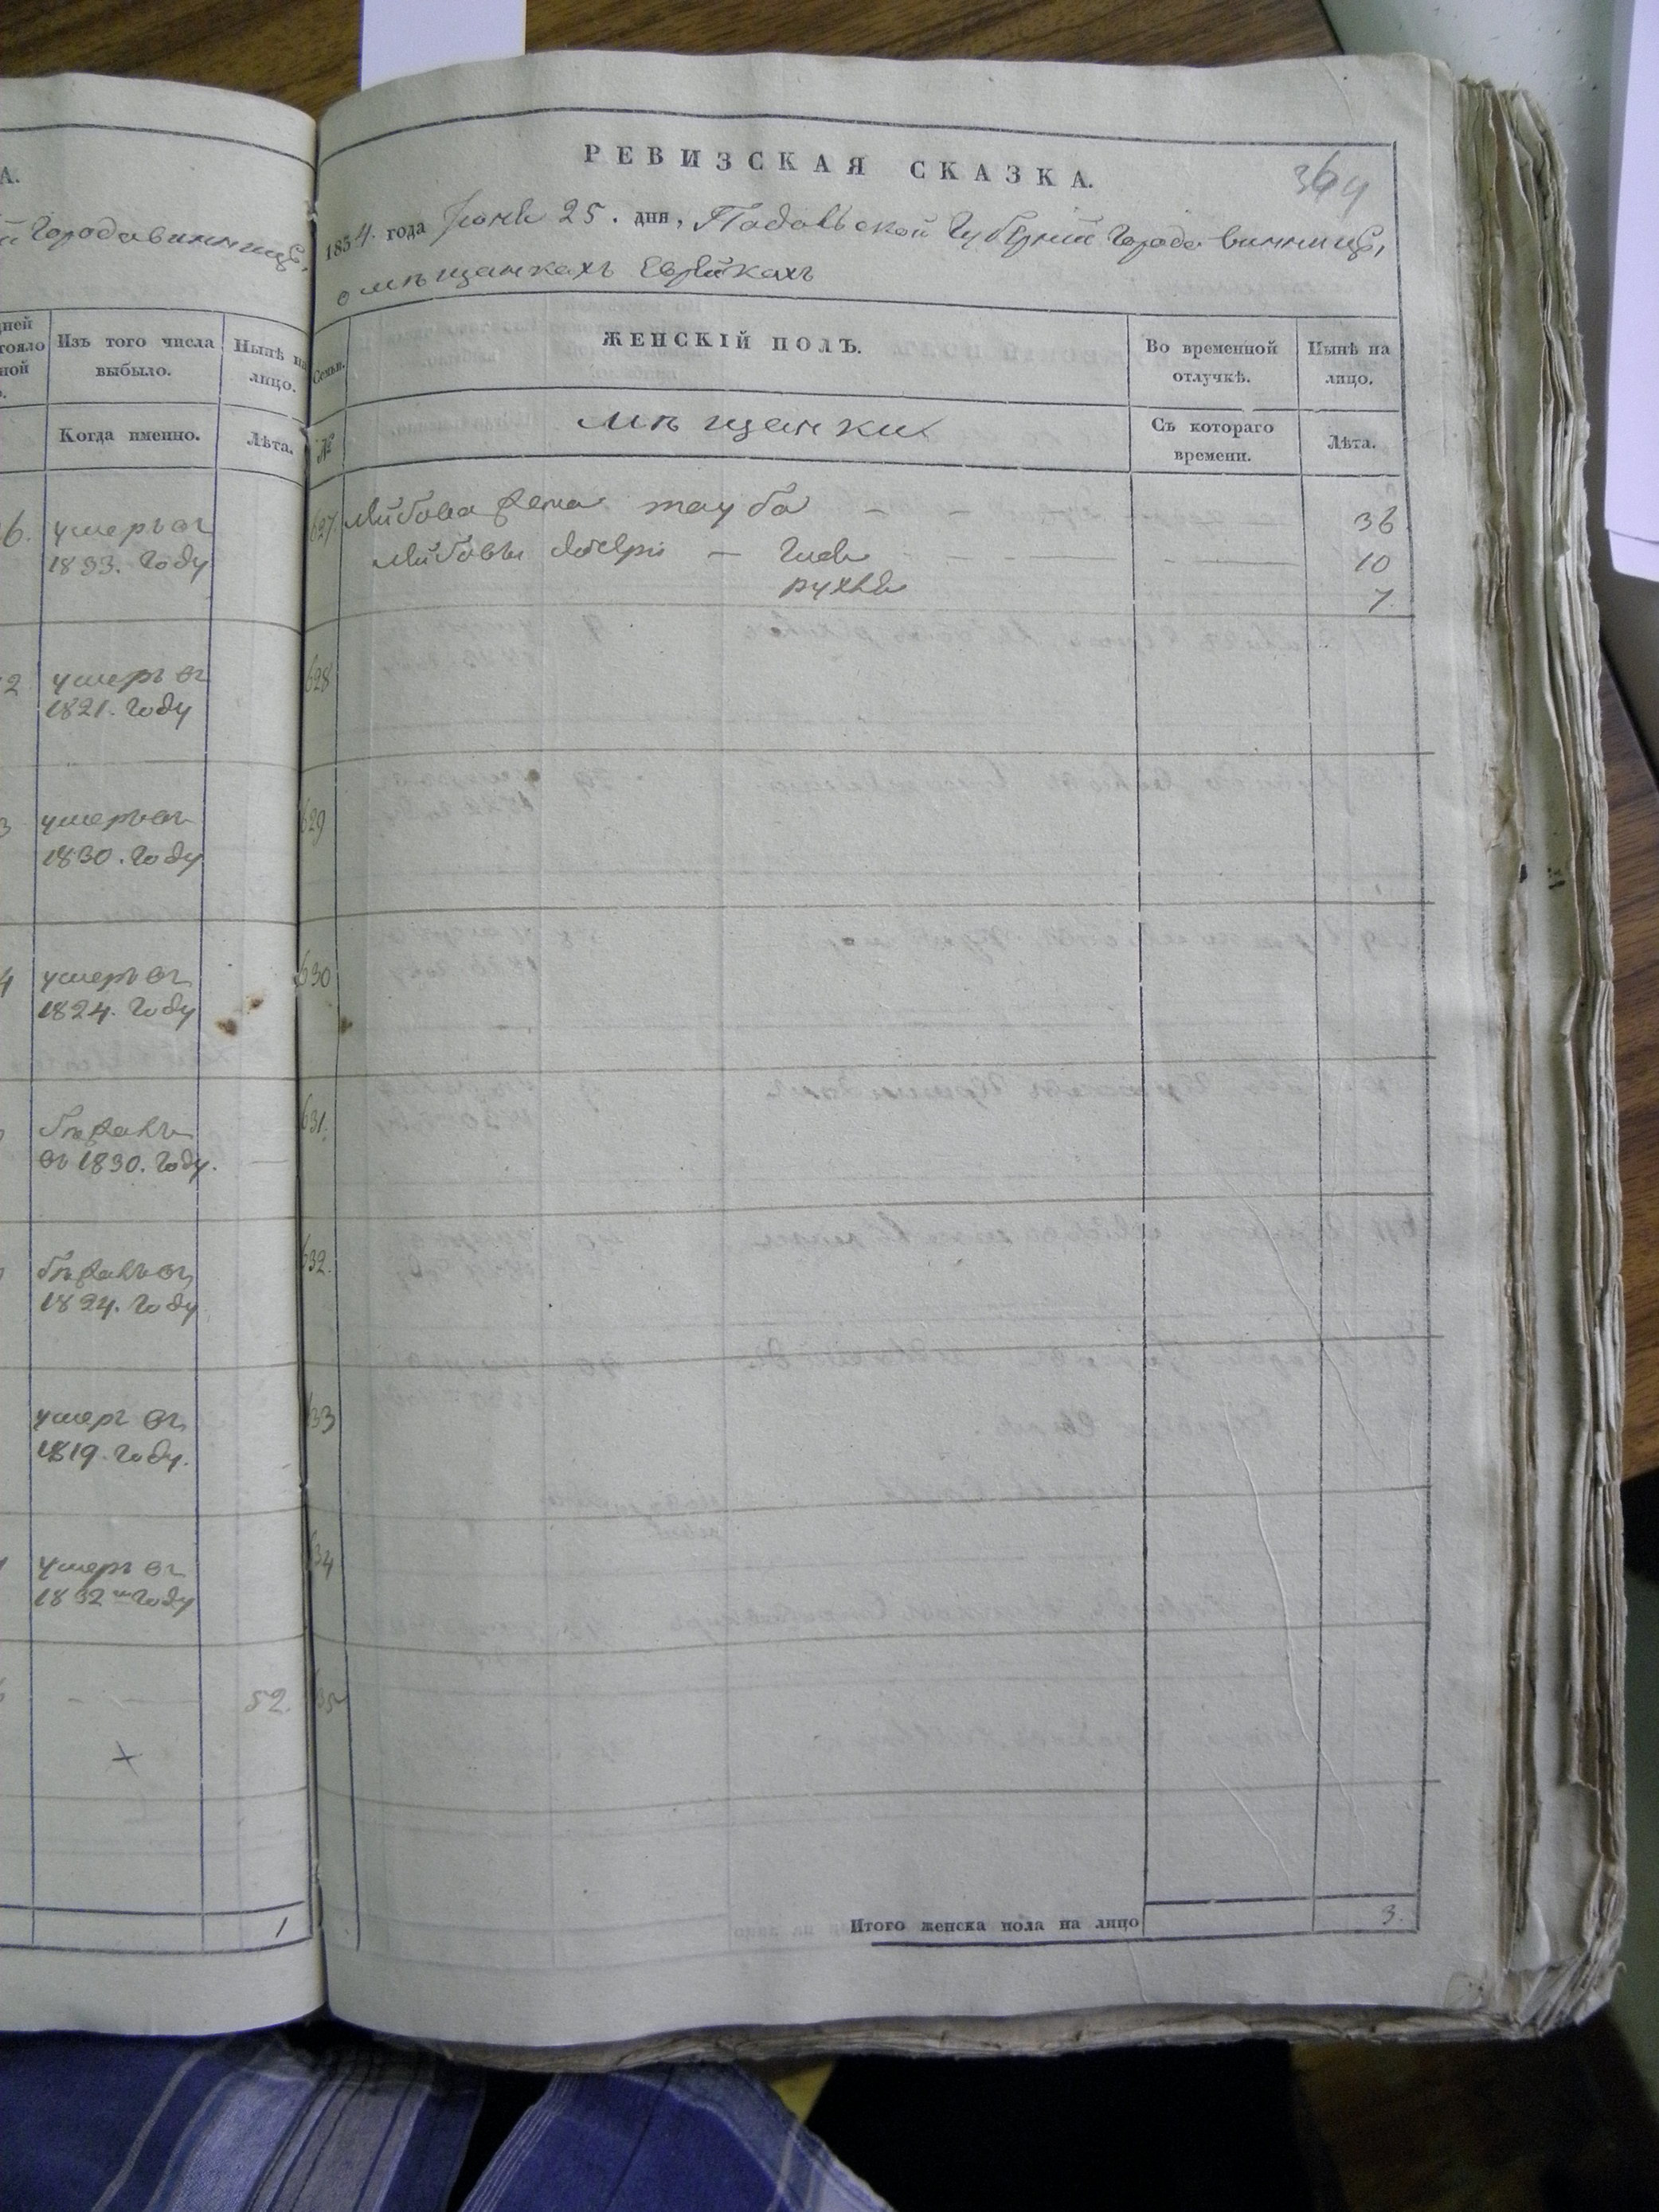 А.
Города винницѣ,
Изъ того числа
выбыло.
Нынѣ на
лицо.
Когда именно.
Лѣта.
6. умеръ въ
1833. году
2 умеръ въ
1821. году
3 умеръ въ
1830. году
4 умеръ въ
1824. году
бѣжалъ
въ 1830. году.
бѣжалъ въ
1824. году
умеръ въ
1819. году.
умеръ въ
1832 году
52.
1
РЕВИЗСКАЯ СКАЗКА.
364
1834. года Июня 25. дня, Подольской Губерніи Города винницѣ,
о мѣщанкахъ Еврейкахъ
Семьи.
ЖЕНСКІЙ ПОЛЪ.
Во временной
отлучкѣ.
Нынѣ на
лицо.
№
мѣщанки
Съ котораго
времени.
Лѣта.
627. Лейбова жена тауба - - 36
Лейбовы дочери — 10
рухля 7.
628
629
630
631.
632.
633
634
635
Итого женска пола на лицо 3.